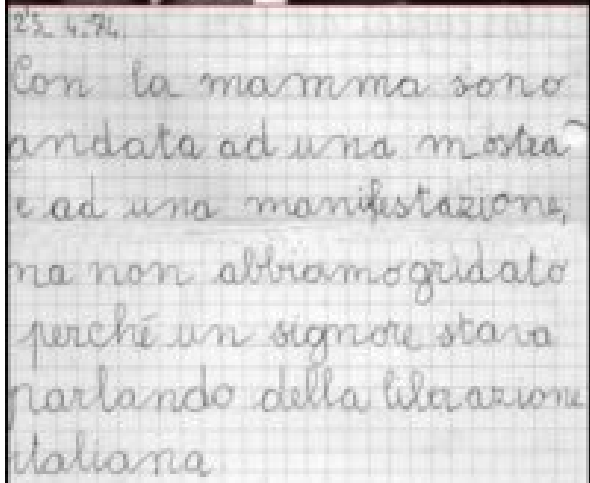 25.4.74.
Con la mamma sono
andata ad una mostra
e ad una manifestazione,
ma non abbiamo gridato
perché un signore stava
parlando della liberazione
italiana.